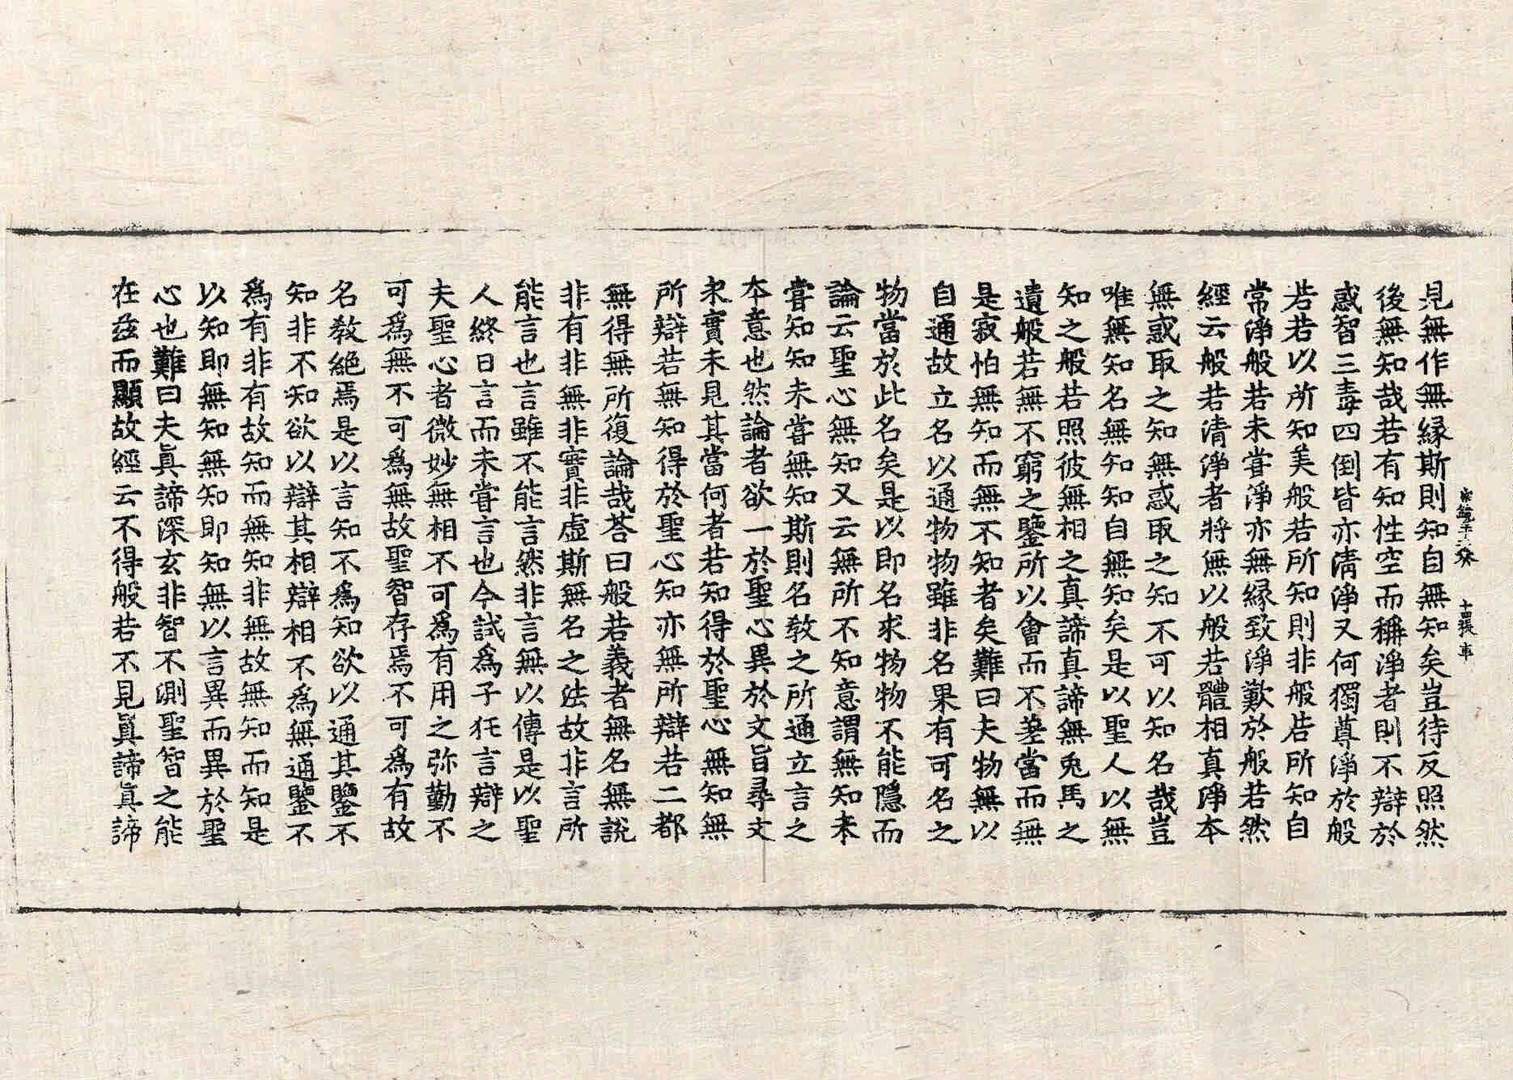 見無作無縁斯則知自無知矣豈待反照然
後無知哉若有知性空而稱淨者則不辯於
惑智三毒四倒皆亦清淨又何獨尊淨於般
若若以所知美般若所知則非般若所知自
常淨般若未甞淨亦無縁致淨歎於般若然
經云般若清淨者將無以般若體相真淨本
無惑取之知無惑取之知不可以知名哉豈
唯無知名無知知自無知矣是以聖人以無
知之般若照彼無相之真諦真諦無兎馬之
遺般若無不窮之鑒所以會而不差當而無
是寂怕無知而無不知者矣難曰夫物無以
自通故立名以通物物雖非名果有可名之
物當於此名矣是以即名求物物不能隱而
論云聖心無知又云無所不知意謂無知未
甞知知未甞無知斯則名教之所通立言之
本意也然論者欲一於聖心異於文旨尋文
求實未見其當何者若知得於聖心無知無
所辯若無知得於聖心知亦無所辯若二都
無得無所復論哉荅曰般若義者無名無説
非有非無非實非虛斯無名之法故非言所
能言也言雖不能言然非言無以傳是以聖
人終日言而未甞言也今試為子狂言辯之
夫聖心者微妙無相不可為有用之弥勤不
可為無不可為無故聖智存焉不可為有故
名教絶焉是以言知不為知欲以通其鑒不
知非不知欲以辯其相辯相不為無通鑒不
為有非有故知而無知非無故無知而知是
以知即無知無知即知無以言異而異於聖
心也難曰夫真諦深玄非智不測聖智之能
在兹而顯故經云不得般若不見真諦真諦